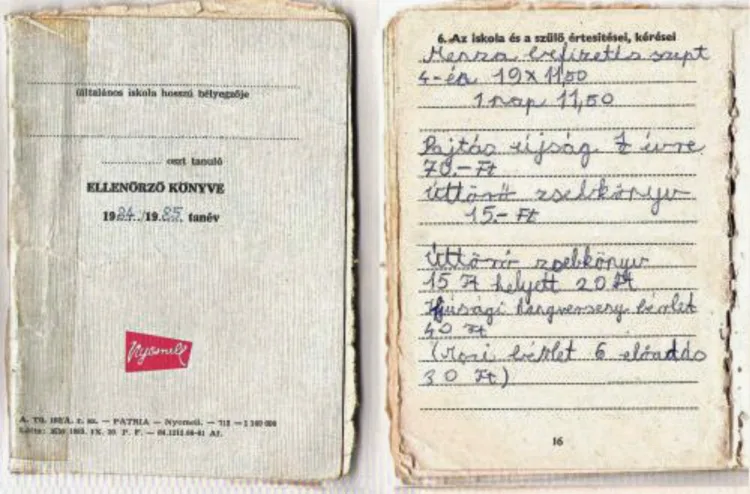 (általános iskola hosszú bélyegzője
oszt tanuló
ELLENŐRZŐ KÖNYVE
1984./1985. tanév
Nyomell
— PÁTRIA — Nyomell. —
6. Az iskola és a szülő értesítései, kérései
Menza befizetés szept
4-én 19 x 11,50
1 nap 11,50
Pajtás újság 1 évre
70.- Ft
Úttörő zsebkönyv
15.- Ft
Úttörő zsebkönyv
15 Ft helyett 20 Ft
Ifjúsági hangverseny bérlet
40 Ft
(Mozi bérlet 6 előadás
30 Ft)
16